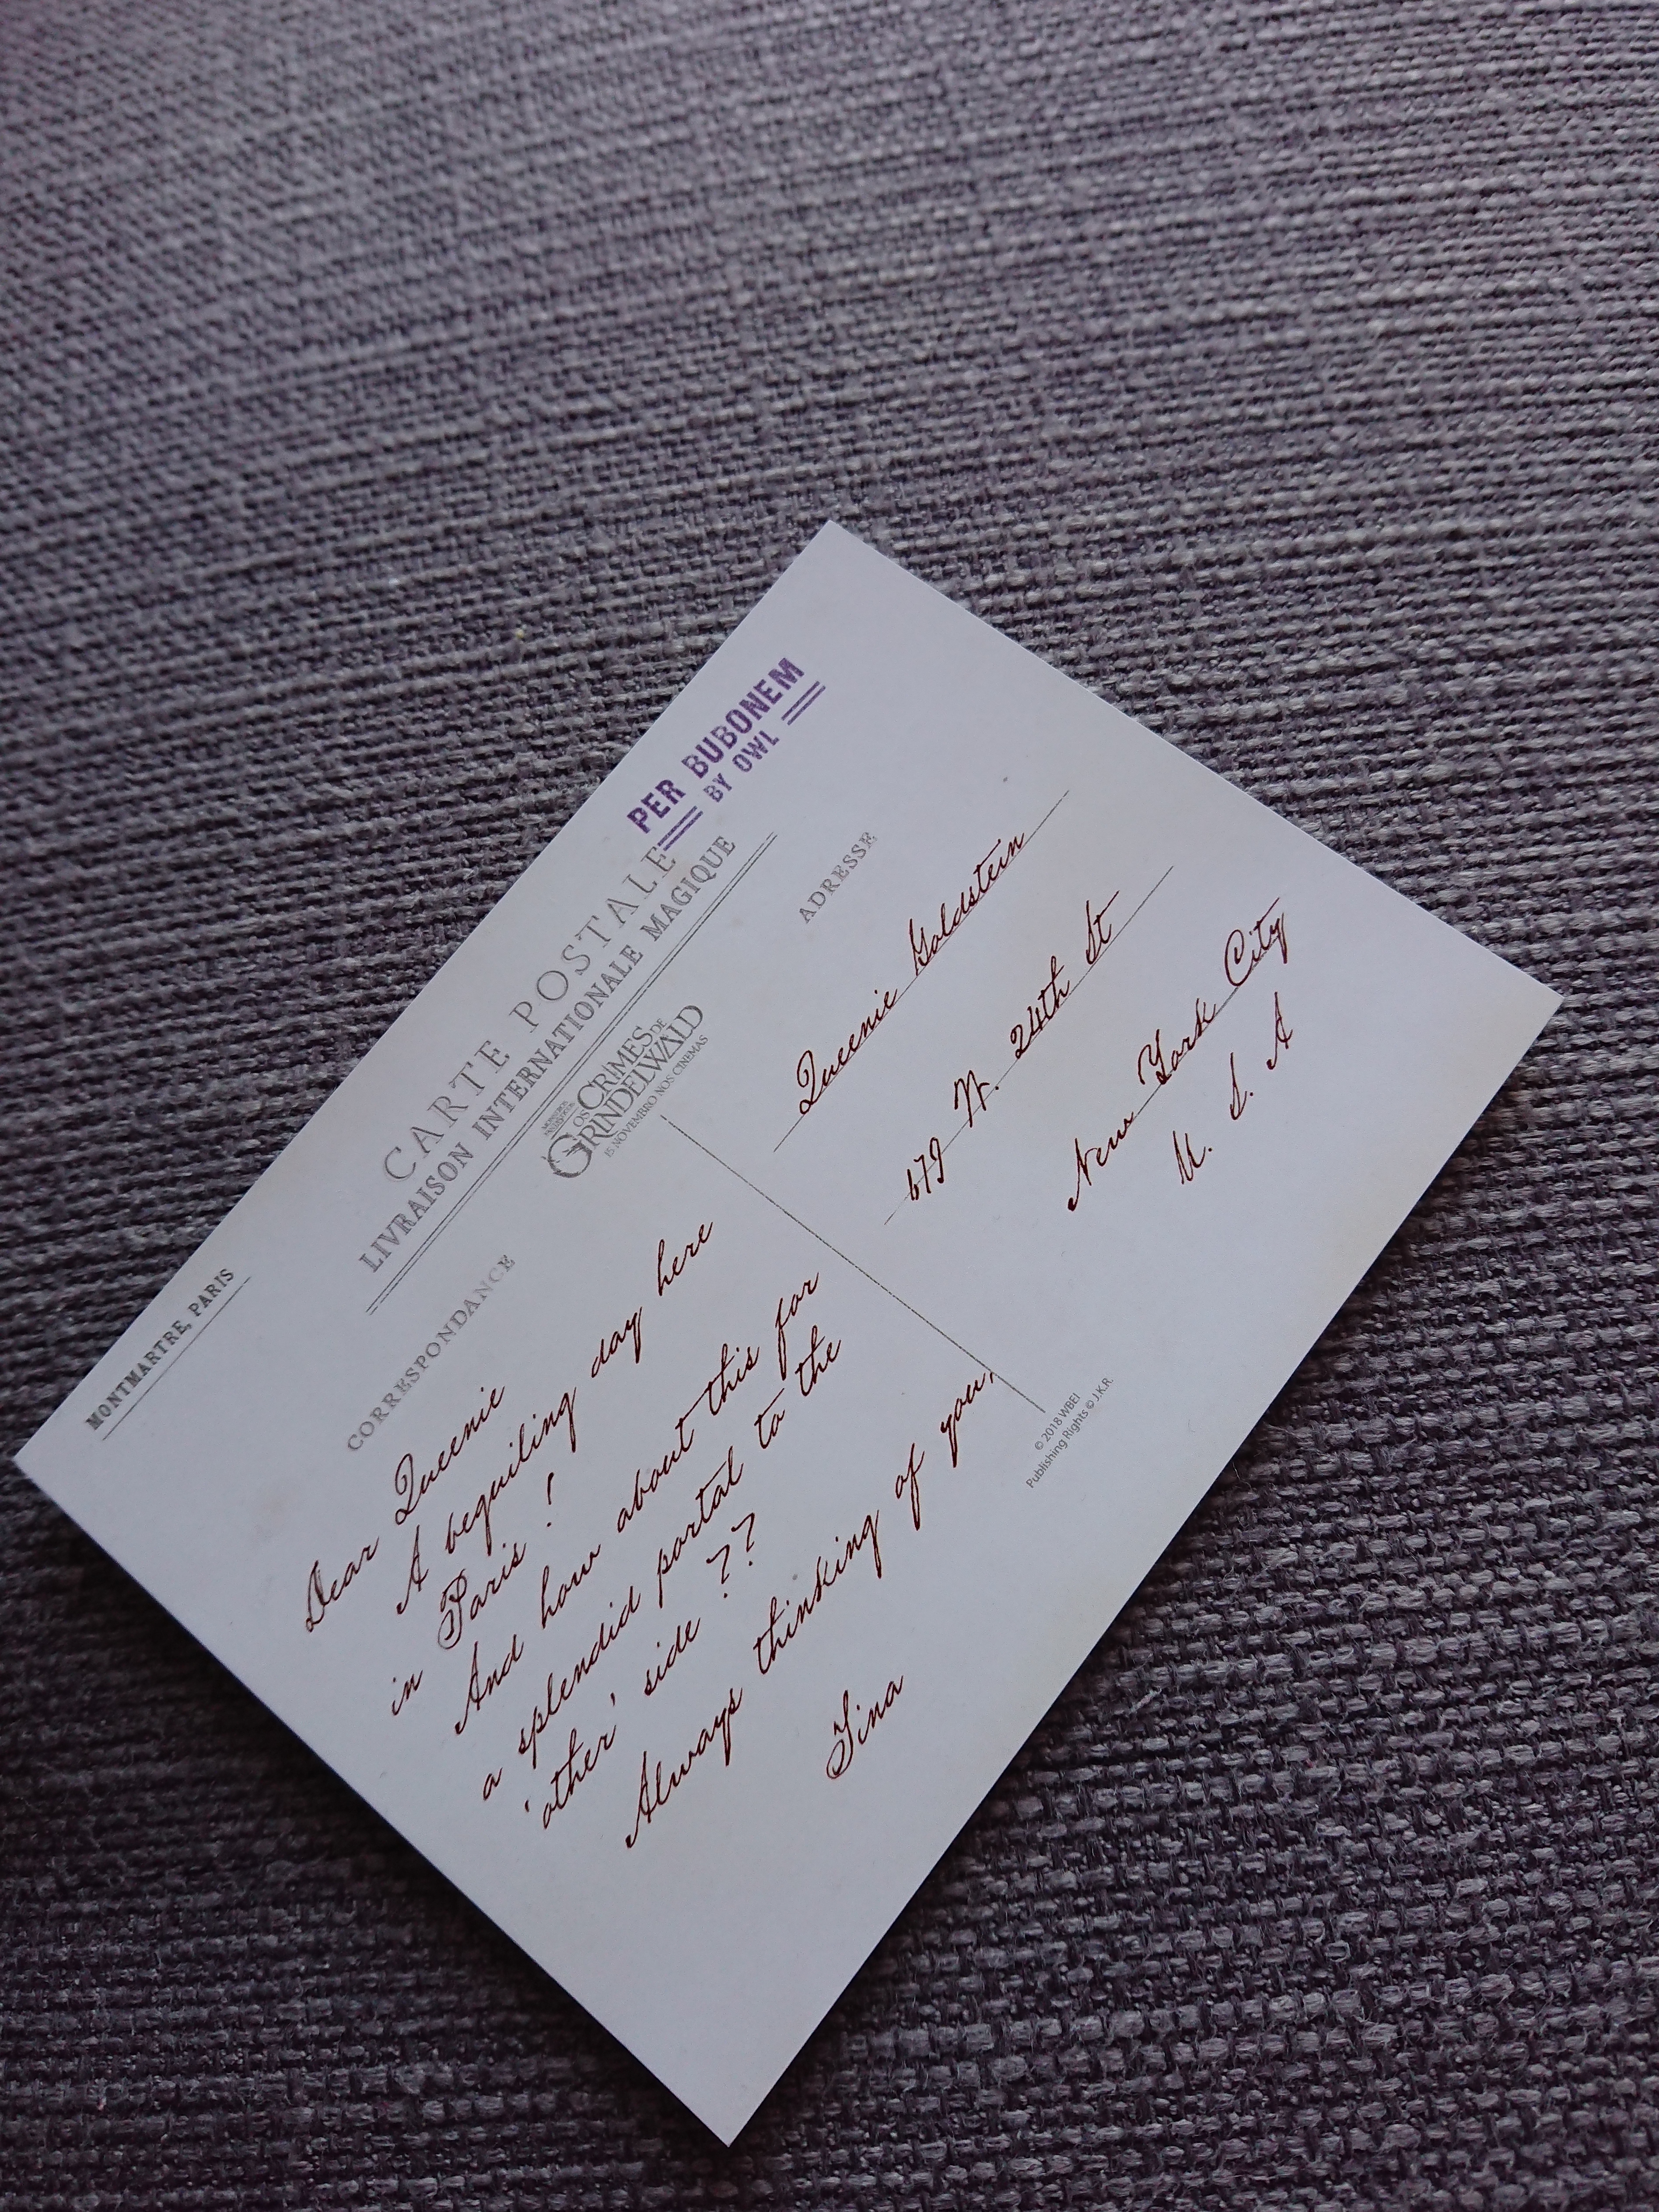 MONTMARTRE, PARIS
CARTE POSTALE
LIVRAISON INTERNATIONALE MAGIQUE
PER BUBONEM
BY OWL
OS CRIMES DE
GRINDELWALD
15 NOVEMBRO NOS CINEMAS
CORRESPONDANCE
Dear Queenie
A beguiling day here
in Paris !
And how about this for
a splendid portal to the
'other' side ??
Always thinking of you,
Tina
ADRESSE
Queenie Goldstein
679 W. 24th St
New York City
U. S. A
© 2018 WBEI
Publishing Rights © J.K.R.